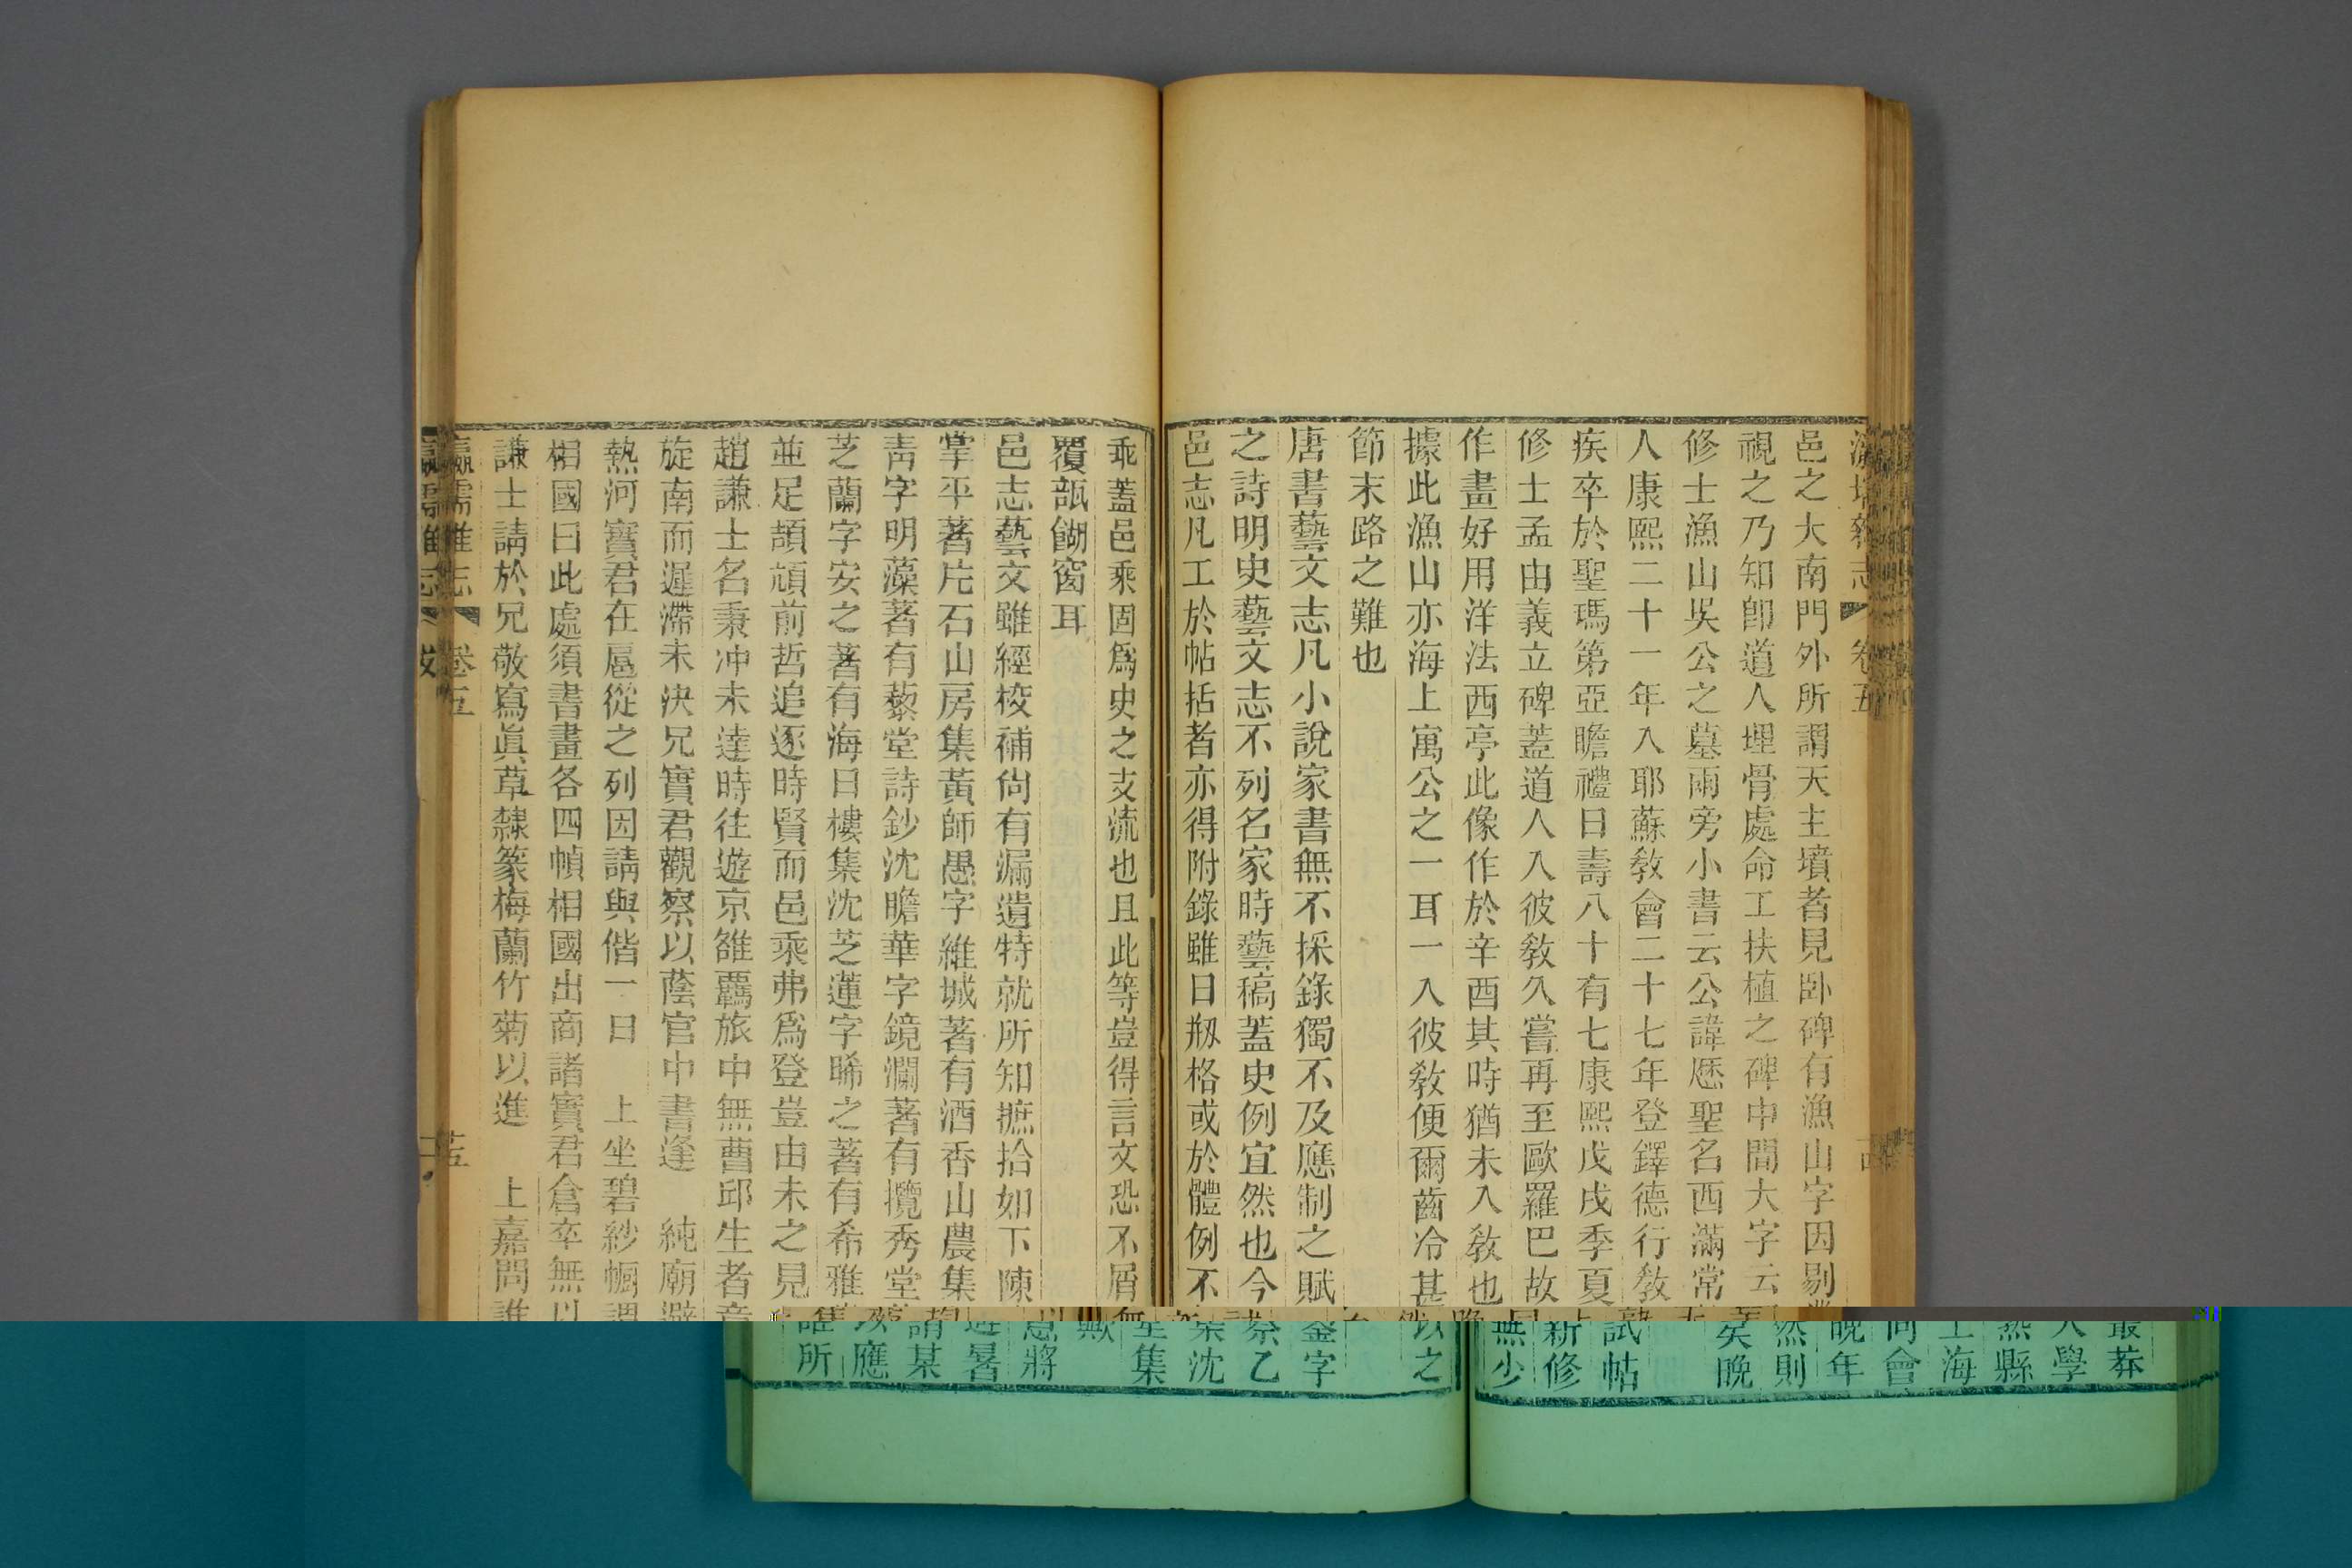 瀛壖雜志 卷五
邑之大南門外所謂天主墳者見卧碑有漁山字因剔叢莽
視之乃知卽道人埋骨處命工扶植之碑中間大字云天學
修士漁山吳公之墓兩旁小書云公諱歷聖名西滿常熟縣
人康熙二十一年入耶蘇教會二十七年登鐸德行教上海
疾卒於聖瑪第亞瞻禮日壽八十有七康熙戊戌季夏同會
修士孟由義立碑蓋道人入彼教久嘗再至歐羅巴故晚年
作畫好用洋法西亭此像作於辛酉其時猶未入教也然則
據此漁山亦海上寓公之一耳一入彼教便爾齒冷甚矣晚
節末路之難也
唐書藝文志凡小說家書無不採錄獨不及應制之賦試帖
之詩明史藝文志不列名家時藝稿蓋史例宜然也今新修
邑志凡工於帖括者亦得附錄雖曰剏格或於體例不無少
乖蓋邑乘固爲史之支流也且此等豈得言文恐不屑以之
覆瓿餬窗耳
邑志藝文雖經校補尙有漏遺特就所知摭拾如下陳字
掌平著片石山房集黃師愚字維城著有酒香山農集蔡乙
靑字明藻著有藜堂詩鈔沈瞻華字鏡瀾著有攬秀堂集沈
芝蘭字安之著有海日樓集沈芝蓮字晞之著有希雅堂集
並足頡頏前哲追逐時賢而邑乘弗爲登豈由未之見歟
趙謙士名秉冲未達時往遊京雒覊旅中無曹邱生者意將
旋南而遲滯未決兄實君觀察以蔭官中書逢 純廟避暑
熱河實君在扈從之列因請與偕一日 上坐碧紗幮謂某
相國曰此處須書畫各四幀相國出商諸實君倉卒無以應
謙士請於兄敬寫眞草隸篆梅蘭竹菊以進 上嘉問誰所
瀛壖雜志 卷五